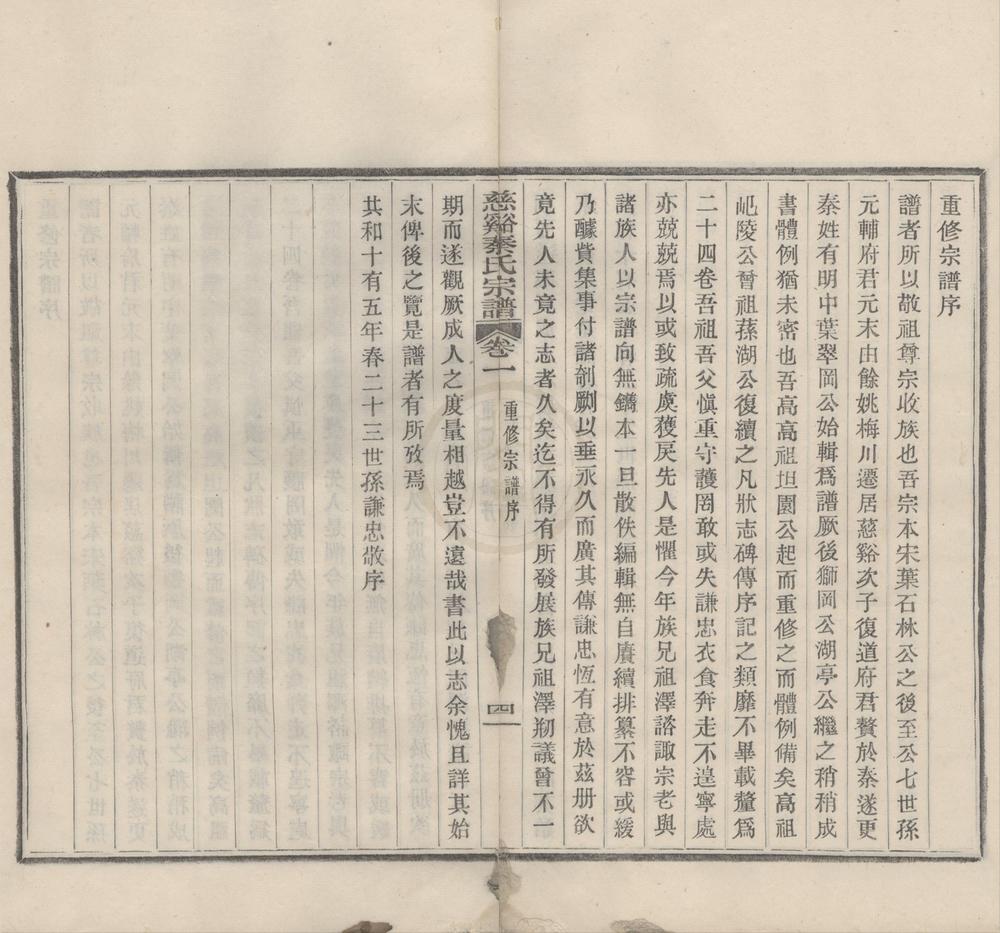 重修宗譜序
譜者所以敬祖尊宗收族也吾宗本宋葉石林公之後至公七世孫
元輔府君元末由餘姚梅川遷居慈谿次子復道府君贅於秦遂更
秦姓有明中葉翠岡公始輯爲譜厥後獅岡公湖亭公繼之稍稍成
書體例猶未密也吾高高祖坦園公起而重修之而體例備矣高祖
屺陵公曾祖蓀湖公復續之凡狀志碑傳序記之類靡不畢載釐爲
二十四卷吾祖吾父愼重守護罔敢或失謙忠衣食奔走不遑寧處
亦兢兢焉以或致疏虞獲戾先人是懼今年族兄祖澤諮諏宗老與
諸族人以宗譜向無鐫本一旦散佚編輯無自賡續排纂不容或緩
乃醵貲集事付諸剞劂以垂永久而廣其傳謙忠恆有意於茲册欲
竟先人未竟之志者久矣迄不得有所發展族兄祖澤剏議曾不一
慈谿秦氏宗譜 卷一 重修宗譜序 四
期而遂觀厥成人之度量相越豈不遠哉書此以志余愧且詳其始
末俾後之覽是譜者有所攷焉
共和十有五年春二十三世孫謙忠敬序